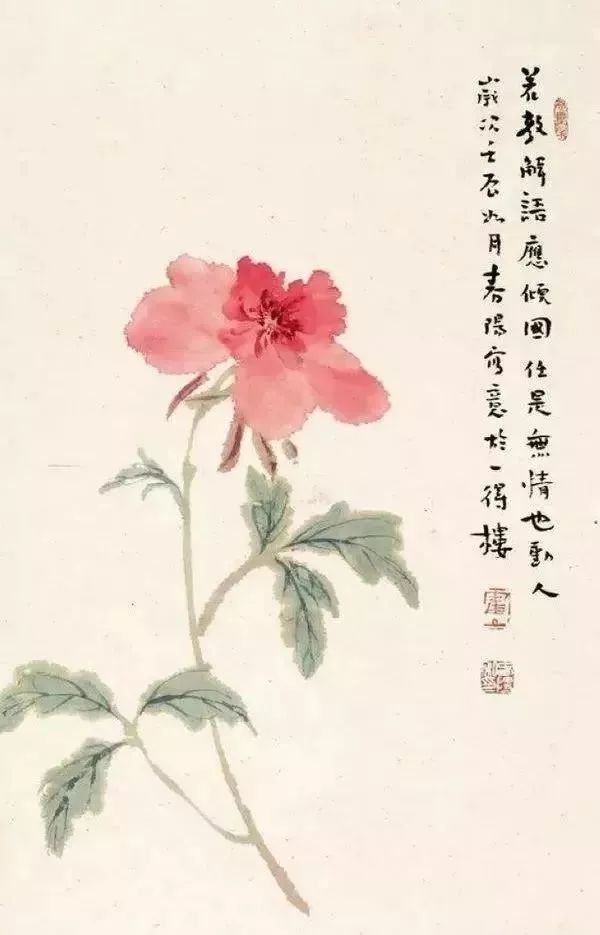 若教解語應傾國任是無情也動人
歲次壬辰如月春陽寫意於一得樓